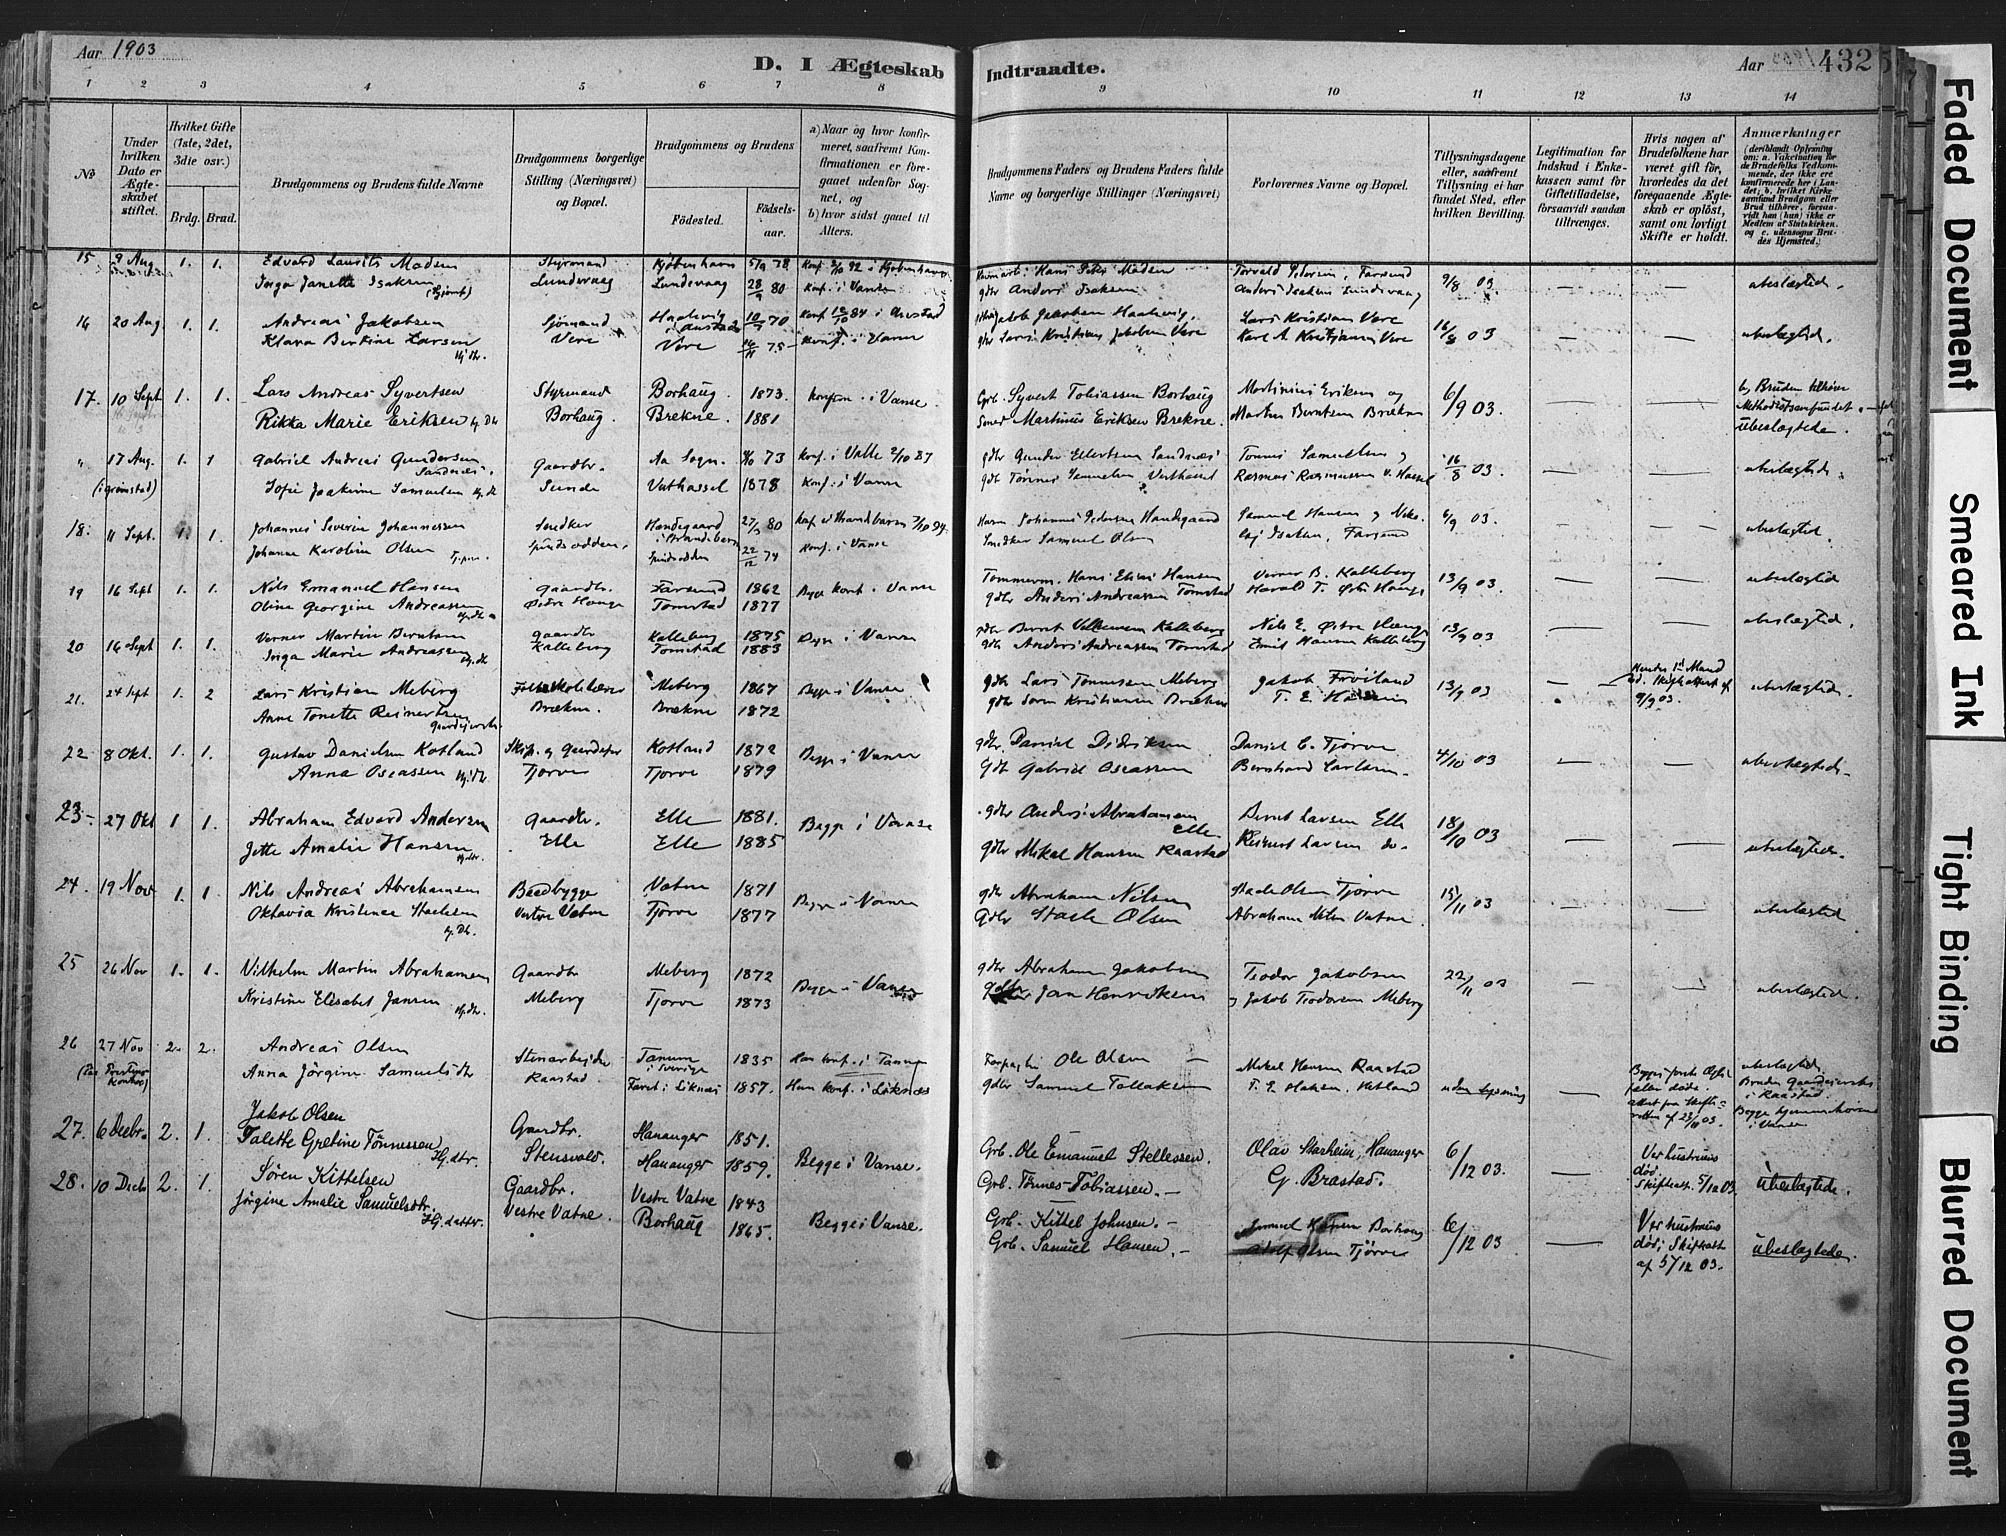 Aar 1903
D. I Ægteskab Indtraadte.
Aar 1903 432
1 2 3 4 5 6 7 8 9 10 11 12 13 14
No
Under hvilken Dato er Ægteskabet stiftet.
Hvilket Gifte (1ste, 2det, 3die osv.)
Brdg. Brud.
Brudgommens og Brudens fulde Navne
Brudgommens borgerlige Stilling (Næringsvei) og Bopæl.
Brudgommens og Brudens
Födested.
Födselsaar.
a) Naar og hvor konfirmeret, saafremt Konfirmationen er foregaaet udenfor Sognet, og
b) hvor sidst gaaet til Alters.
Brudgommens Faders og Brudens Faders fulde Navne og borgerlige Stillinger (Næringsvei)
Forlovernes Navne og Bopæl.
Tillysningsdagene eller, saafremt Tillysning ei har fundet Sted, efter hvilken Bevilling.
Legitimation for Indskud i Enkekassen samt for Giftetilladelse, forsaavidt saadan tiltrænges.
Hvis nogen af Brudefolkene har været gift för, hvorledes da det foregaaende Ægteskab er oplöst, samt om lovligt Skifte er holdt.
Anmærkninger (deriblandt Oplysning om: a. Vakcination for de Brudefolks Vedkommende, der ikke ere konfirmerede her i Landet; b. hvilket Kirkesamfund Brudgom eller Brud tilhörer, forsaavidt han (hun) ikke er Medlem af Statskirken. og c. udensogns Brudes Hjemsted.)
15 9 Aug 1. 1. Edvard Laurits Madsen Styrmand Kjøbenhavn 5/9 78 Konf. 2/10 92 i Kjøbenhavn Hans Peter Madsen Torvald Pedersen, Farsund 9/8 03 — — ubeslægtede.
Inga Janette Isaksen Lundevaag Lundevaag 28/9 80 Konf. i Vanse gdbr Anders Isaksen Anders Isaksen Lundevaag
16 20 Aug 1. 1. Andreas Jakobsen Sjømand 10/7 70 Konf. 12/10 84 i Jakob Jakobsen Lars Kristian Vere 16/8 03 — — ubeslægtede.
Klara Bertine Larsen Hj. dtr. Vere Vere 16/11 75 Konf. i Vanse gdbr Lars Kristian Jakobsen Vere Kristiansen Vere
17. 10 Sept 1. 1. Lars Andreas Syvertsen Styrmand Borhaug. 1873. Konfirm. i Vanse. Grb. Syvert Tobiassen Borhaug Martinius Eriksen og 6/9 03. — — b, Bruden tilhører Methodistsamfundet
Rikka Marie Eriksen Hj. Dtr Borhaug. Brekne. 1881 Smed Martinus Eriksen Brekne. Martin Berntsen Brekne ubeslægtede.
" 17 Aug. 1. 1 Gabriel Andreas Gundersen Sandnes. Gaardbr. Aa Sogn. 73 Konf. i Valle 2/10 87 gdbr Gunder Ellertsen Sandnes Tønnes Samuelsen og 16/8 03 — — ubeslægtede
(i Grimstad) Sofie Joakime Samuelsen Hj. dtr Sunde Vathassel 1878 Konf. i Vanse gdbr Tønnes Samuelsen Vesthassel Rasmus Rasmussen V. Hassel
18. 11 Sept. 1. 1. Johannes Severin Johannessen Snedker Handegaard i Strandebarm 27/3 80 Konf. i Strandebarm 7/10 94. Johannes Pedersen Handegaard Samuel Hansen og 6/9 03. — — ubeslægtede.
Johanne Karoline Olsen Spindsodden. Spindsodden 22/12 74 Konf. i Vanse Snedker Samuel Olsen Isaksen, Farsund
19 16 Sept 1. 1. Nils Emanuel Hansen Gaardbr. Farsund 1862 Begge Konf. i Vanse Tømmerm. Hans Elias Hansen Verner B. Kalleberg 13/9 03 — — ubeslægtede
Oline Georgine Andreassen Hj. dtr Østre Hauge Tomstad 1877 gdbr Anders Andreassen Tomstad Harald T. Østre Hauge
20 16 Sept 1. 1. Verner Martin Berntsen gaardbr Kalleberg 1875 Begge i Vanse gdbr Bernt Kalleberg Nils E. Østre Hauge 13/9 03 — — ubeslægtede.
Inga Marie Andreassen Hj. dtr Kalleberg Tomstad 1883 gdbr Anders Andreassen Tomstad Emil Hansen Kalleberg
21. 24 Sept 1. 2 Lars Kristian Meberg Folkeskolelærer Meberg 1867 Begge i Vanse gdbr Lars Tønnesen Meberg Jakob Frøiland 13/9 03 — Hendes 1ste Mand død. Skifteattest af 9/9 03. ubeslægtede.
Anne Tonette Reinertsen Brækne. Brækne 1872 gdbr Soren Kristiansen Brækne T. E.
22 8 Okt. 1. 1. Gustav Danielsen Kotland Skip. og Gaardeier Kotland 1872 Begge i Vanse gdbr. Daniel Didriksen Daniel C. Tjørve 4/10 03 — — ubeslægtede
Anna Oseassen Hj. dtr. Tjorve Tjorve 1879 gdbr Gabriel Oseassen Bernhard Carlsen.
23. 27 Okt 1 1. Abraham Edvard Andersen Gaardbr. Elle 1881. Begge i Vanse gdbr Anders Abrahamsen Elle Bernt Larsen Elle 18/10 03 — — ubeslægtede.
Jette Amalie Hansen Hj. dtr. Elle Elle 1885 gdbr Mikal Hansen Raastad Reinert Larsen do.
24. 19 Nov 1. 1. Nils Andreas Abrahamsen Baadbygge Vatne 1871 Begge i Vanse gdbr Abraham Nilsen Stale Olsen Tjørve 15/11 03 — — ubeslægtede
Oktavia Kristence Stalesen Hj. Dtr. Vestre Vatne Tjorve 1877 Gdbr Stale Olsen Abraham Nilsen Vatne
25 26 Nov 1. 1. Vilhelm Martin Abrahamsen Gaardbr Meberg 1872 Begge i Vanse gdbr Abraham Jakobsen Teodor Jakobsen 22/11 03 — — ubeslægtede.
Kristine Elisabet Jansen Hj. dtr. Meberg Tjorve 1873 gdbr Jan Henriksen og Jakob Teodorsen Meberg
26 27 Nov 2. 2. Andreas Olsen Stenarbejder Tanum i Sverige 1835 Han konf. i Tanum Forpagter Ole Olsen — Mikal Hansen Raastad uden lysning — Begges første Ægtefæller døde. Attest fra Skifteretten af 23/11 03. ubeslægtede
Anna Jörgine Samuelsdtr Raastad. Faret i Liknes 1857. Hun konf. i Liknes gdbr. Samuel Tollaksen T. E. Hansen, Kotland Bruden Gaardeierske i Raastad. Begge hjemmehørende i Vanse
27. 6 Decbr. 2. 1. Jakob Olsen Gaardbr. Hananger 1851. Begge i Vanse. Grb. Ole Emanuel Stellessen. Olav Starheim, Hananger 6/12 03. — 1ste hustruens død. Skifteatt. 5/12 03. Ubeslægtede.
Talette Gretine Tönnessen Hj. dtr. Stensvold. Hananger 1859. Grb. Tönnes Tobiassen. — G. Brastad.
28. 10 Decb 2. 1. Søren Kittelsen Gaardbr. Vestre Vatne 1843 Begge i Vanse. Grb. Kittel Johnsen. — Samuel Borhaug 6/12 03 — 1ste hustruens død; Skifteatt af 5/12 03. Ubeslægtede.
Jörgine Amalie Samuelsdtr. Hj. datter. Vestre Vatne. Borhaug 1865. Grb. Samuel Hansen. — Adolf Olsen Tjörve
Faded Document
Smeared Ink
Tight Binding
Blurred Document